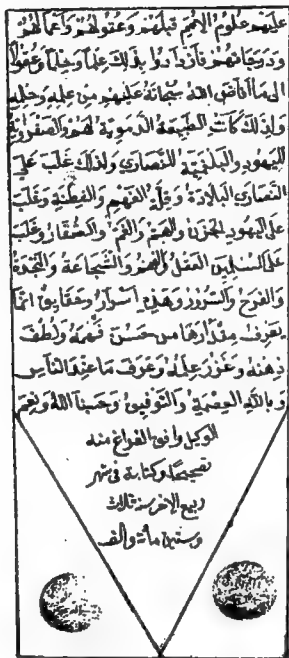 عليهم علوم الامم قبلهم وعقولهم واعمالهم
ودرجاتهم فازدادوا بذلك علما وحلما وعقولا
الى ما أفاض الله سبحانه عليهم من علمه وحلمه
ولذلك كانت الطبيعة الدموية لهم والصفراوية
لليهود والبلغمية للنصارى ولذلك غلب على
النصارى البلادة وقلة الفهم والفطنة وغلب
على اليهود الحزن والهم والغم والصغار وغلب
على المسلمين العقل والفهم والشجاعة والنجدة
والفرح والسرور وهذه اسرار وحقايق انما
يعرف مقدارها من حسن فهمه ولطف
ذهنه وغزر علمه وعرف ما عند الناس
وبالله العصمة والتوفيق وحسبنا الله ونعم
الوكيل وافق الفراغ منه
تصحيحا وكتابة في شهر
ربيع الاخر سنة ثالث
وستين مائة والف